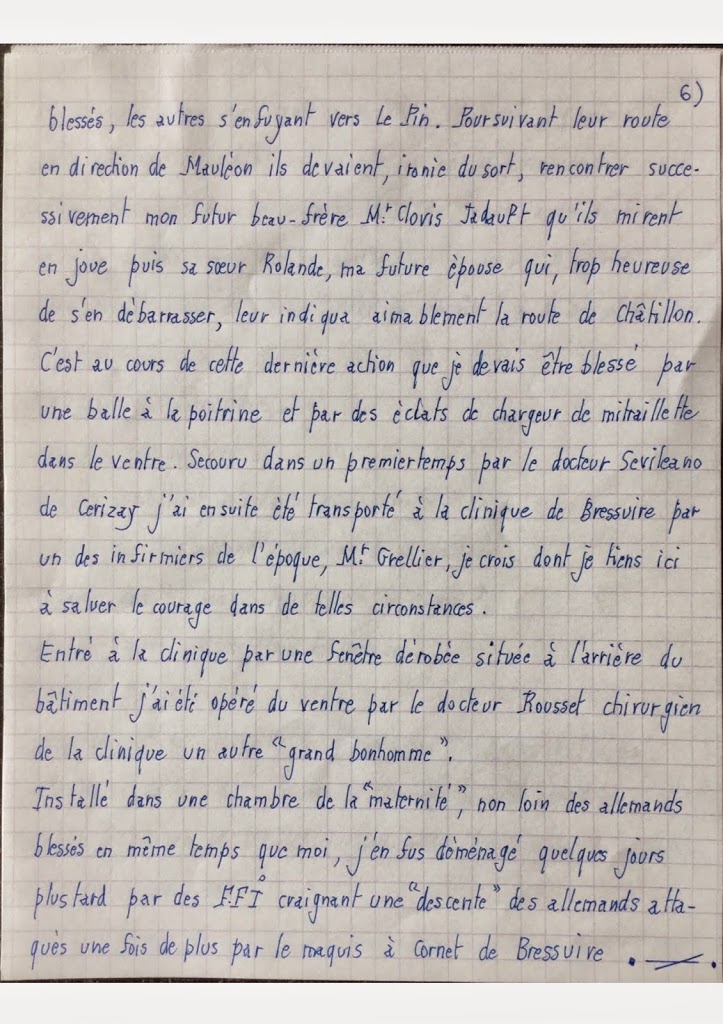 6)
blessés, les autres s'enfuyant vers Le Pin. Poursuivant leur route
en direction de Mauléon ils devaient, ironie du sort, rencontrer succe-
ssivement mon futur beau-frère Mr. Clovis Jadault qu'ils mirent
en joue puis sa sœur Rolande, ma future épouse qui, trop heureuse
de s'en débarrasser, leur indiqua aimablement la route de Châtillon.
C'est au cours de cette dernière action que je devais être blessé par
une balle à la poitrine et par des éclats de chargeur de mitraillette
dans le ventre. Secouru dans un premier temps par le docteur Sevileano
de Cerizay j'ai ensuite été transporté à la clinique de Bressuire par
un des infirmiers de l'époque, Mr. Grellier, je crois dont je tiens ici
à saluer le courage dans de telles circonstances.
Entré à la clinique par une fenêtre dérobée située à l'arrière du
bâtiment j'ai été opéré du ventre par le docteur Rousset chirurgien
de la clinique un autre "grand bonhomme".
Installé dans une chambre de la "maternité", non loin des allemands
blessés en même temps que moi, j'en fus déménagé quelques jours
plus tard par des F.F.I craignant une "descente" des allemands atta-
qués une fois de plus par le maquis à Cornet de Bressuire.